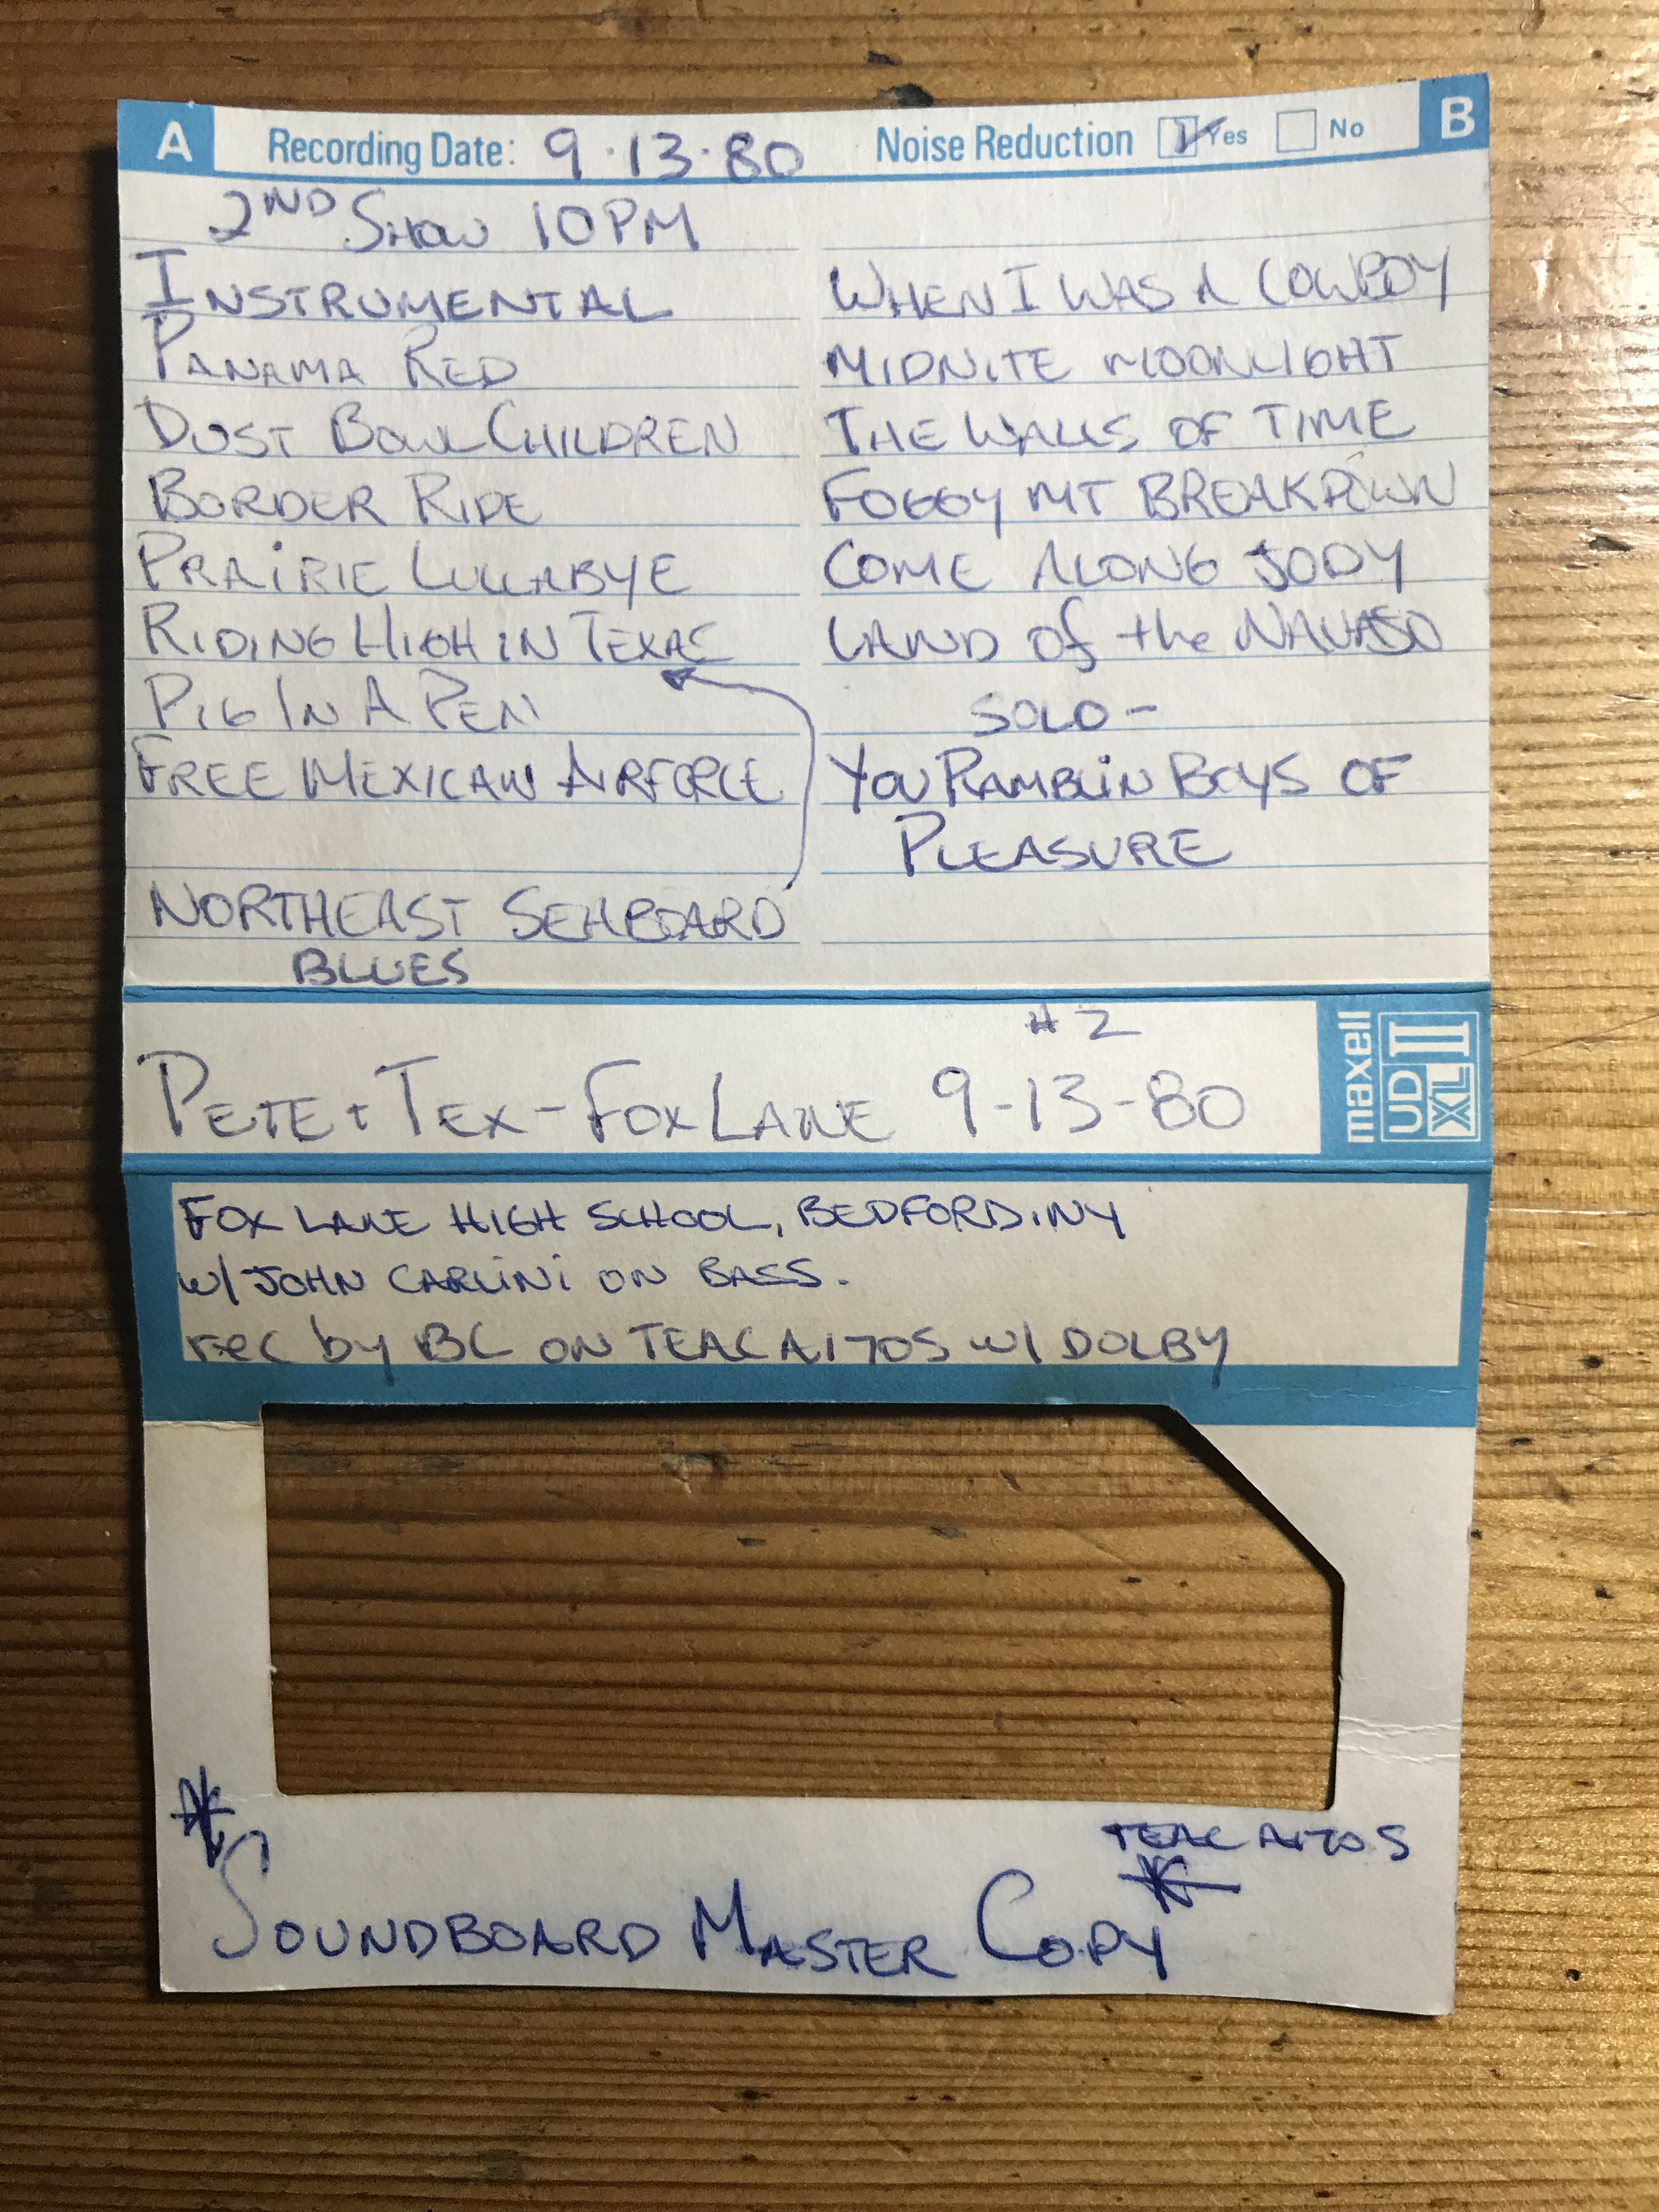 A Recording Date: 9·13·80 Noise Reduction Yes No B
2ND SHOW 10PM
INSTRUMENTAL
PANAMA RED
DUST BOWL CHILDREN
BORDER RIDE
PRAIRIE LULLABYE
RIDING HIGH IN TEXAS
PIG IN A PEN
FREE MEXICAN AIRFORCE
NORTHEAST SEABOARD
BLUES
WHEN I WAS A COWBOY
MIDNITE MOONLIGHT
THE WALLS OF TIME
FOGGY MT BREAKDOWN
COME ALONG JODY
LAND of the NAVAJO
SOLO -
YOU RAMBLIN BOYS OF
PLEASURE
#2
PETE + TEX - FOX LANE 9-13-80
maxell
UD XL II
FOX LANE HIGH SCHOOL, BEDFORD, NY
W/ JOHN CARLINI ON BASS.
rec by BC ON TEAC A170S W/ DOLBY
TEAC A170S
* SOUNDBOARD MASTER COPY *